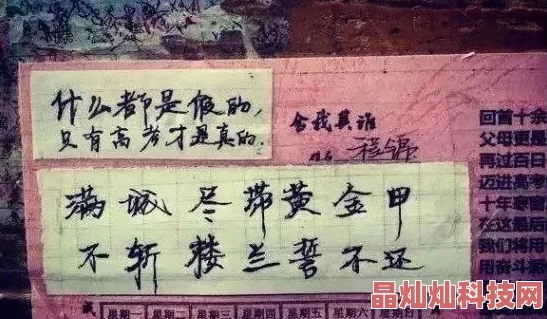 什么都是假的，
只有高考才是真的.
舍我其谁
满城尽带黄金甲
不斩楼兰誓不还
回首十余
父母更是
再过百日
迈进高考
十年寒窗
在这最后
我们将用
用奋斗
星期一 星期二 星期三 星期四 星期五 星期六 星期日
晶灿灿科技网